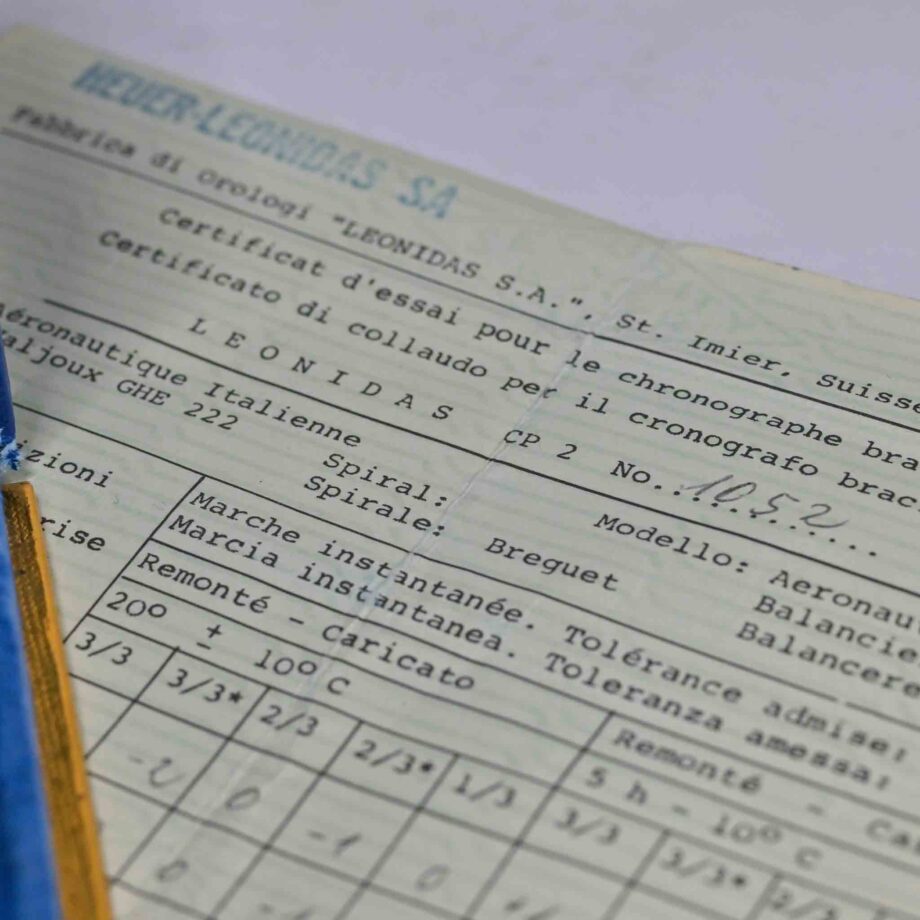 HEUER-LEONIDAS SA
Fabbrica di Orologi "LEONIDAS S.A.", St. Imier, Suisse
Certificat d'essai pour le chronographe bra
Certificato di collaudo per il cronografo brac
L E O N I D A S CP 2 No... 1052
aéronautique Italienne Modello: Aeronaut
aljoux GHE 222 Spiral: Breguet Balancie
Spirale: Balancere
izioni Marche instantanée. Tolérance admise:
Marcia instantanea. Toleranza amessa:
rise Remonté - Caricato Remonté - Ca
20° ± 10° C 5 h - 10° C
3/3 3/3* 2/3 2/3* 1/3 3/3 3/3* 2/
-2 0 -1 0
0